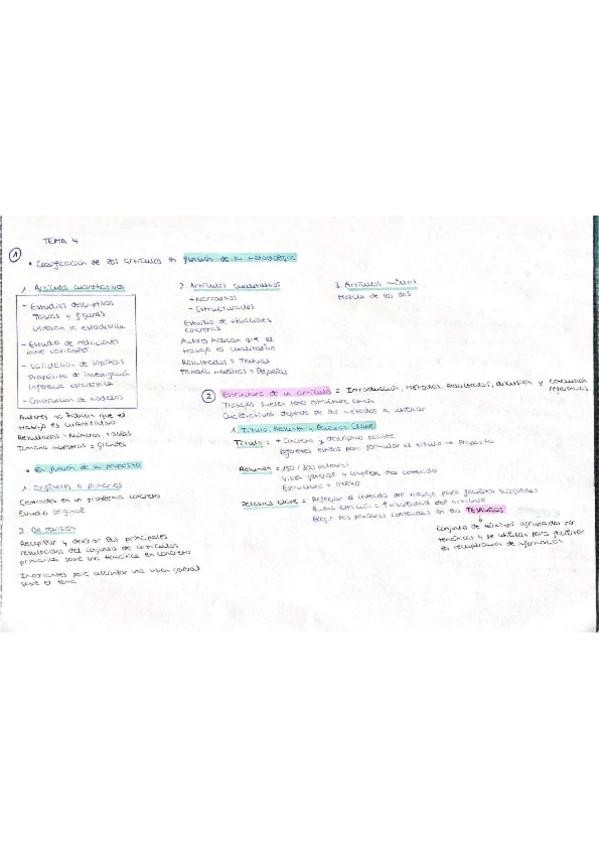 TEMA 4
1
• Clasificación de los artículos en función de su metodología
1. Artículos cuantitativos
- Estudios descriptivos
Tablas y figuras
Utilizan la estadística
- Estudio de relaciones
entre variables
- Validación de hipótesis
Propósito de investigación
Inferencia estadística
- Construcción de modelos
Autores no indican que el
trabajo es cuantitativo
Resultados = Números + tablas
Tamaño muestras = grandes
• En función de su propósito
1. Originales o primarios
Centrados en un problema concreto
Estudio original
2. De revisión
Recopilar y derivar los principales
resultados del conjunto de artículos
primarios sobre una temática en concreto
Importantes para alcanzar una visión general
sobre el tema
2. Artículos cualitativos
+ Narrativos
- Estructurados
Estudio de situaciones
concretas
Autores indican que el
trabajo es cualitativo
Resultados = Textual
Tamaño muestras = Pequeñas
3. Artículos mixtos
Mezcla de los dos
2 Estructura de un artículo = Introducción, Métodos, Resultados, discusión y conclusión
referencias
Trabajos suelen tener estructura común
Cualitativos depende de los métodos a utilizar
1. Título, Resumen y Palabras Clave
Título = + Conciso y descriptivo posible
Intereses evitar para formular el título → Propósito
Resumen = 150 / 300 palabras
Visión general y completa del contenido
Estructura = IMRYD
Palabras Clave = Reflejar el contenido del trabajo para facilitar búsquedas
Buena elección = ↑ visibilidad del artículo
Elegir las palabras contenidas en los TESAUROS
↓
Conjunto de términos agrupados por
temáticas y se utilizan para facilitar
la recuperación de información